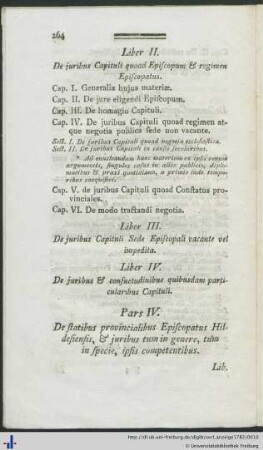 264
Liber II.
De juribus Capituli quoad Episcopum & regimen
Episcopatus.
Cap. I. Generalia hujus materiæ.
Cap. II. De jure eligendi Episcopum.
Cap. III. De homagio Capituli.
Cap. IV. De juribus Capituli quoad regimen at-
que negotia publica sede non vacante.
Sect. I. De juribus Capituli quoad regimen ecclesiastica.
Sect. II. De juribus Capituli in causis secularibus.
* Ad enucleandam hanc materiam ex ipsis omnia
argumentis, singulis casus in actis publicis, diplo-
matibus & praxi quotidiana, a priscis inde tempo-
ribus conquisivi.
Cap. V. de juribus Capituli quoad Conflatus pro-
vinciales.
Cap. VI. De modo tractandi negotia.
Liber III.
De juribus Capituli Sede Episcopali vacante vel
impedita.
Liber IV.
De juribus & consuetudinibus quibusdam parti-
cularibus Capituli.
Pars IV.
De statibus provincialibus Episcopatus Hil-
desiensis, & juribus tum in genere, tum
in specie, ipsis competentibus.
Lib.
© Universitätsbibliothek Freiburg